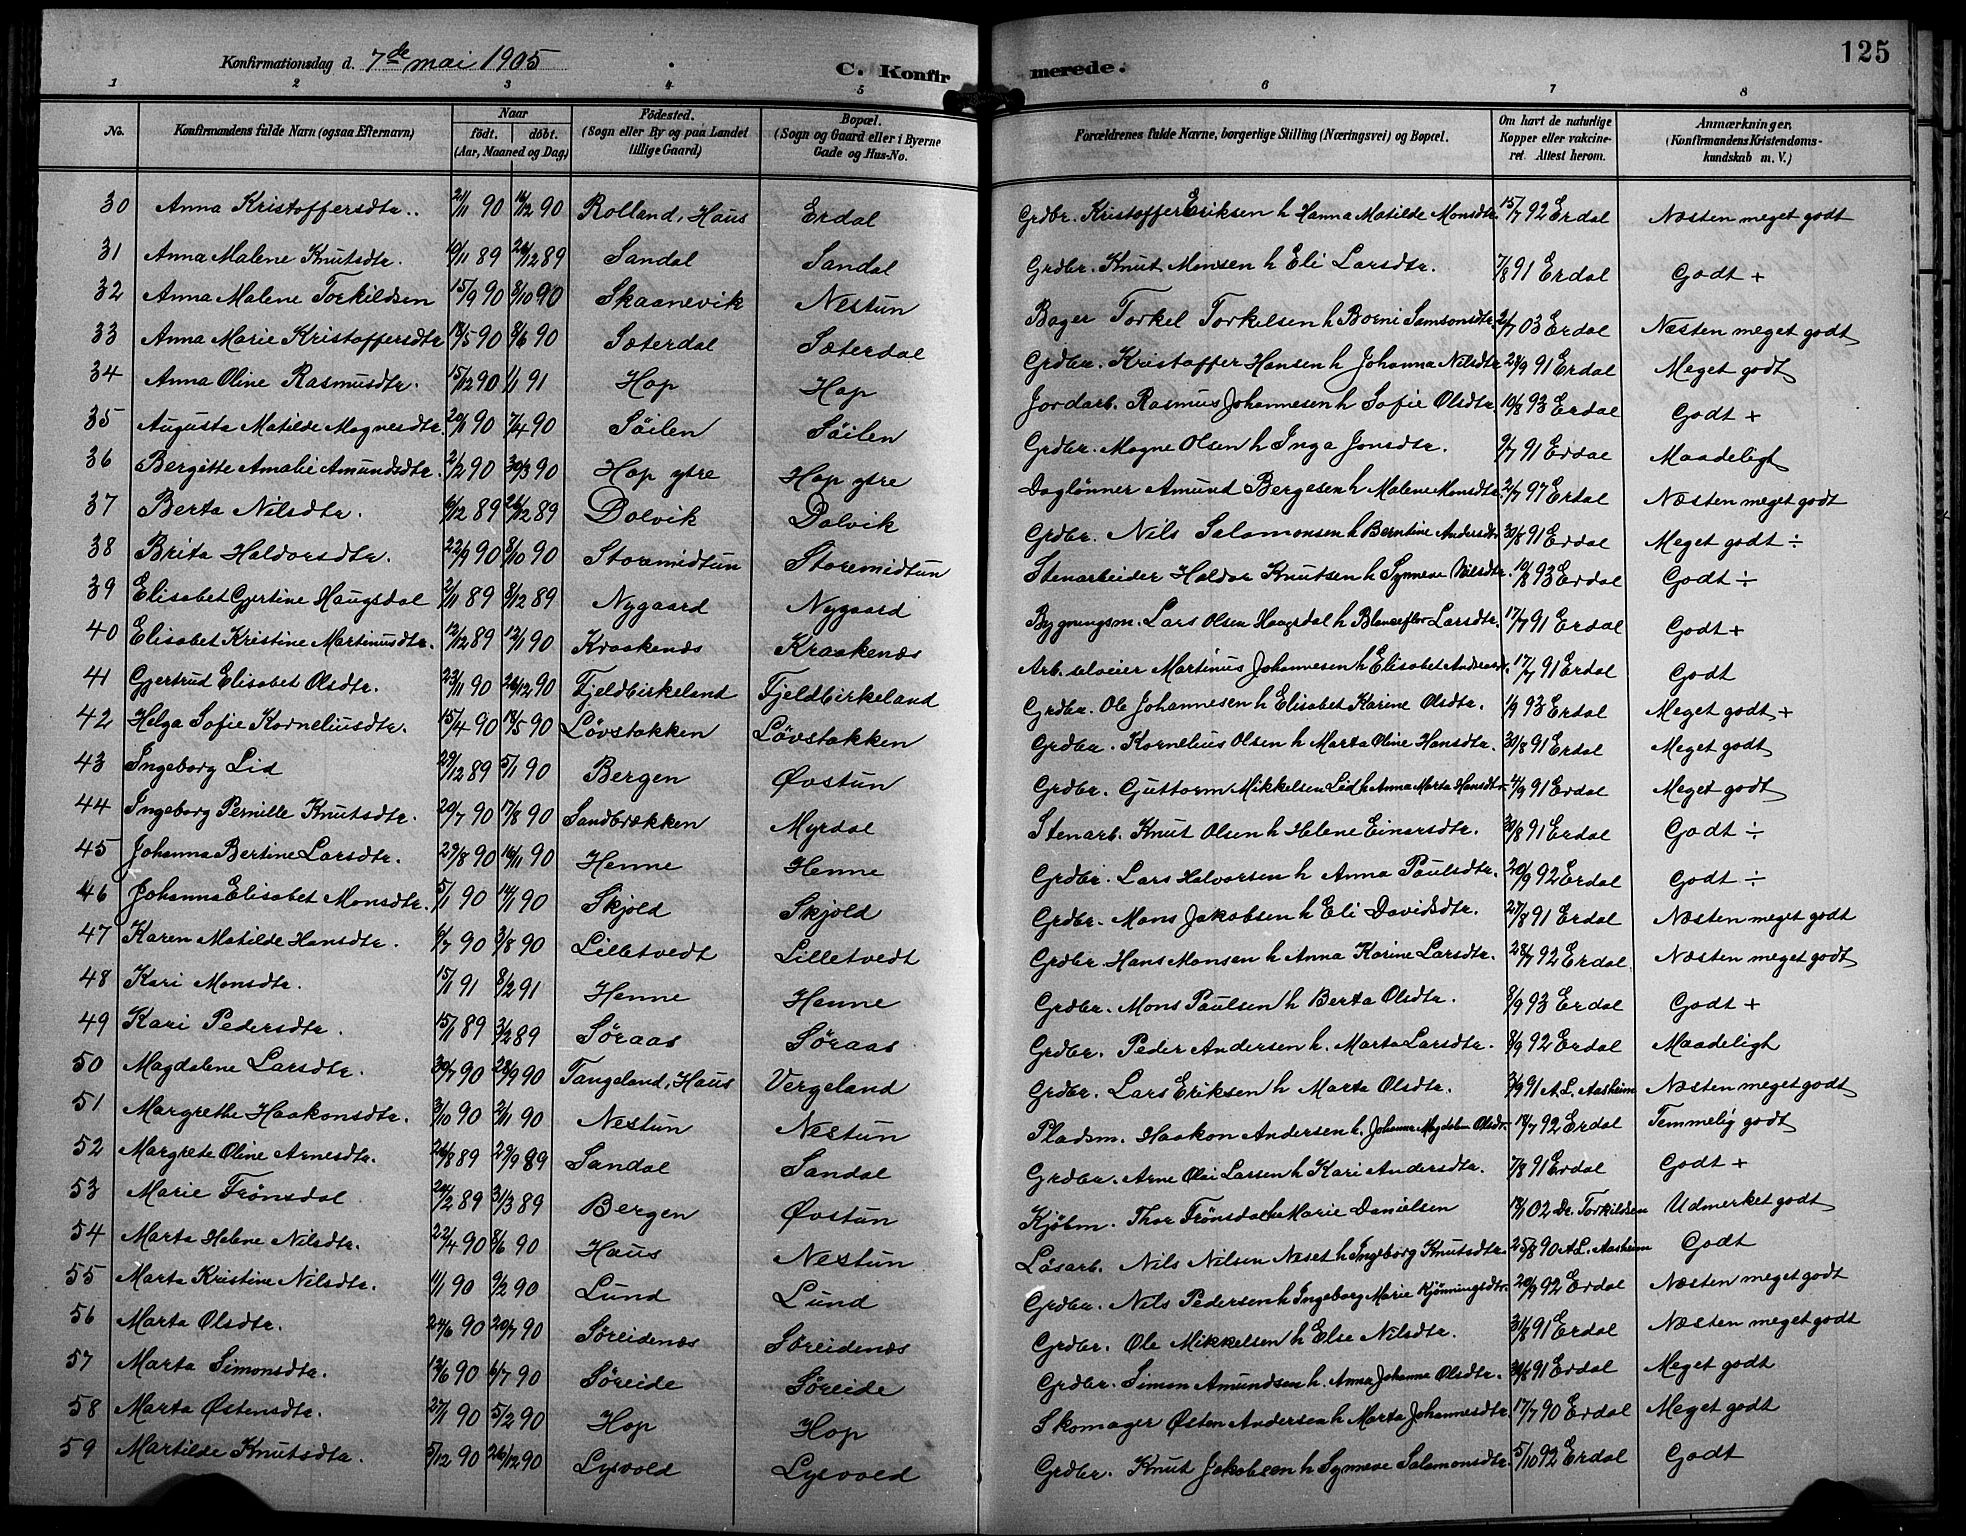 Konfirmationsdag d. 7de mai 1905
C. Konfirmerede.
125
1 2 3 4 5 6 7 8
No.
Konfirmandens fulde Navn (ogsaa Efternavn)
Naar
födt. döbt.
(Aar, Maaned og Dag)
Födested.
(Sogn eller By og paa Landet
tillige Gaard)
Bopæl.
(Sogn og Gaard eller i Byerne
Gade og Hus-No.
Forældrenes fulde Navne, borgerlige Stilling (Næringsvei) og Bopæl.
Om havt de naturlige
Kopper eller vakcine-
ret. Attest herom.
Anmærkninger,
(Konfirmandens Kristendoms-
kundskab m. V.)
30 Anna Kristoffersdtr. 21/11 90 14/12 90 Rolland, Haus Erdal Grdbr. Kristoffer Eriksen h Hanna Matilde Monsdtr. 15/7 92 Erdal Næsten meget godt
31 Anna Malene Knutsdtr. 19/11 89 26/12 89 Sandal Sandal Grdbr. Knut Monsen h Eli Larsdtr. 7/8 91 Erdal Godt +
32 Anna Malene Torkildsen 15/9 90 8/10 90 Skaanevik Nestun Bager Torkel Torkelsen h Borni Samsonsdtr. 2/7 03 Erdal Næsten meget godt
33 Anna Marie Kristoffersdtr 18/5 90 8/6 90 Sæterdal Sæterdal Grdbr. Kristoffer Hansen h Johanna Nilsdtr 28/9 91 Erdal Meget godt
34 Anna Oline Rasmusdtr. 15/12 90 1/1 91 Hop Hop Jordarb. Rasmus Johannesen h Sofie Olsdtr. 10/8 93 Erdal Godt +
35 Augusta Matilde Magnesdtr. 20/1 90 7/4 90 Söilen Söilen Grdbr. Magne Olsen h Inga Jonsdtr. 9/7 91 Erdal Maadeligt
36 Bergitte Amalie Amundsdtr. 2/2 90 30/3 90 Hop ytre Hop ytre Daglönner Amund Bergesen h Malene Monsdtr. 2/7 97 Erdal Næsten meget godt
37 Berta Nilsdtr. 6/12 89 26/12 89 Dolvik Dolvik Grdbr. Nils Salamonsen h Berntine Andersdtr 30/8 91 Erdal Meget godt ÷
38 Brita Haldorsdtr. 22/9 90 8/10 90 Storemidtun Storemidtun Stenarbeider Haldor Knutsen h Synneve Nilsdtr. 10/8 93 Erdal Godt ÷
39 Elisabet Gjertine Haugsdal 2/11 89 8/12 89 Nygaard Nygaard Bygningsm. Lars Olsen Haugsdal h Blanceflor Larsdtr. 17/7 91 Erdal Godt +
40 Elisabet Kristine Martinusdtr. 12/12 89 12/1 90 Kraakenæs Kraakenæs Arb. selveier Martinus Johannesen h Elisabet Andersdtr. 17/7 91 Erdal Godt
41 Gjertrud Elisabet Olsdtr. 23/11 90 26/12 90 Fjeldbirkeland Fjeldbirkeland Grdbr. Ole Johannesen h Elisabet Karine Olsdtr. 1/9 93 Erdal Meget godt +
42 Helga Sofie Korneliusdtr. 15/4 90 18/5 90 Lövstakken Lövstakken Grdbr. Kornelius Olsen h Marta Oline Hansdtr. 30/8 91 Erdal Meget godt
43 Ingeborg Lid 29/12 89 5/1 90 Bergen Øvstun Grdbr. Guttorm Mikkelsen Lid h Anna Marta Hansdtr. 4/9 91 Erdal Meget godt
44 Ingeborg Pernille Knutsdtr. 20/7 90 17/8 90 Sandbrækken Myrdal Stenarb. Knut Olsen h Helene Einarsdtr. 30/8 91 Erdal Godt ÷
45 Johanna Bertine Larsdtr. 29/8 90 16/11 90 Henne Henne Grdbr. Lars Halvorsen h Anna Paulsdtr. 20/9 92 Erdal Godt ÷
46 Johanna Elisabet Monsdtr. 5/1 90 14/1 90 Skjold Skjold Grdbr. Mons Jakobsen h Eli Davidsdtr. 27/8 91 Erdal Næsten meget godt
47 Karen Matilde Hansdtr. 6/7 90 3/8 90 Lilletvedt Lilletvedt Grdbr. Hans Monsen h Anna Karine Larsdtr. 28/7 92 Erdal Næsten meget godt
48 Kari Monsdtr. 15/1 91 8/2 91 Henne Henne Grdbr. Mons Paulsen h Berta Olsdtr. 8/9 93 Erdal Godt +
49 Kari Pedersdtr. 15/1 89 3/2 89 Söraas Söraas Grdbr. Peder Andersen h. Marta Larsdtr. 8/9 92 Erdal Maadeligt
50 Magdalene Larsdtr. 30/7 90 28/9 90 Tangeland, Haus Vergeland Grdbr. Lars Eriksen h Marta Olsdtr. 3/9 91 A.L. Aasheim Næsten meget godt
51 Margrethe Haakonsdtr. 3/10 90 2/11 90 Nestun Nestun Pladsm. Haakon Andersen h. Johanne Magdalene Olsdtr. 18/7 92 Erdal Temmelig godt
52 Margrete Oline Arnesdtr. 26/8 89 29/9 89 Sandal Sandal Grdbr. Arne Olai Larsen h Kari Andersdtr. 7/8 91 Erdal Godt +
53 Marie Frönsdal 24/2 89 31/3 89 Bergen Øvstun Kjöbm. Thor Frönsdal h Marie Danielsen 18/1 02 Dr. Torkildsen Udmerket godt
54 Marta Helene Nilsdtr. 22/4 90 8/6 90 Haus Nestun Lösarb. Nils Nilsen Neset h Ingeborg Knutsdtr. 25/8 90 A.L. Aasheim Godt
55 Marta Kristine Nilsdtr. 1/1 90 9/2 90 Lund Lund Grdbr. Nils Pedersen h Ingeborg Marie Kjönningsdtr. 20/9 92 Erdal Næsten meget godt
56 Marta Olsdtr. 24/6 90 20/7 90 Söreidenæs Söreidenæs Grdbr. Ole Mikkelsen h Else Nilsdtr. 31/8 91 Erdal Næsten meget godt
57 Marta Simonsdtr. 12/6 90 6/7 90 Söreide Söreide Grdbr. Simon Amundsen h. Anna Johanna Olsdtr. 30/8 91 Erdal Meget godt
58 Marta Østensdtr. 27/1 90 5/2 90 Hop Hop Skomager Østen Andersen h Marta Johannesdtr. 17/7 90 Erdal Meget godt
59 Martilde Knutsdtr. 5/12 90 26/12 90 Lysvold Lysvold Grdbr. Knut Jakobsen h Synneve Salamonsdtr. 5/10 92 Erdal Godt